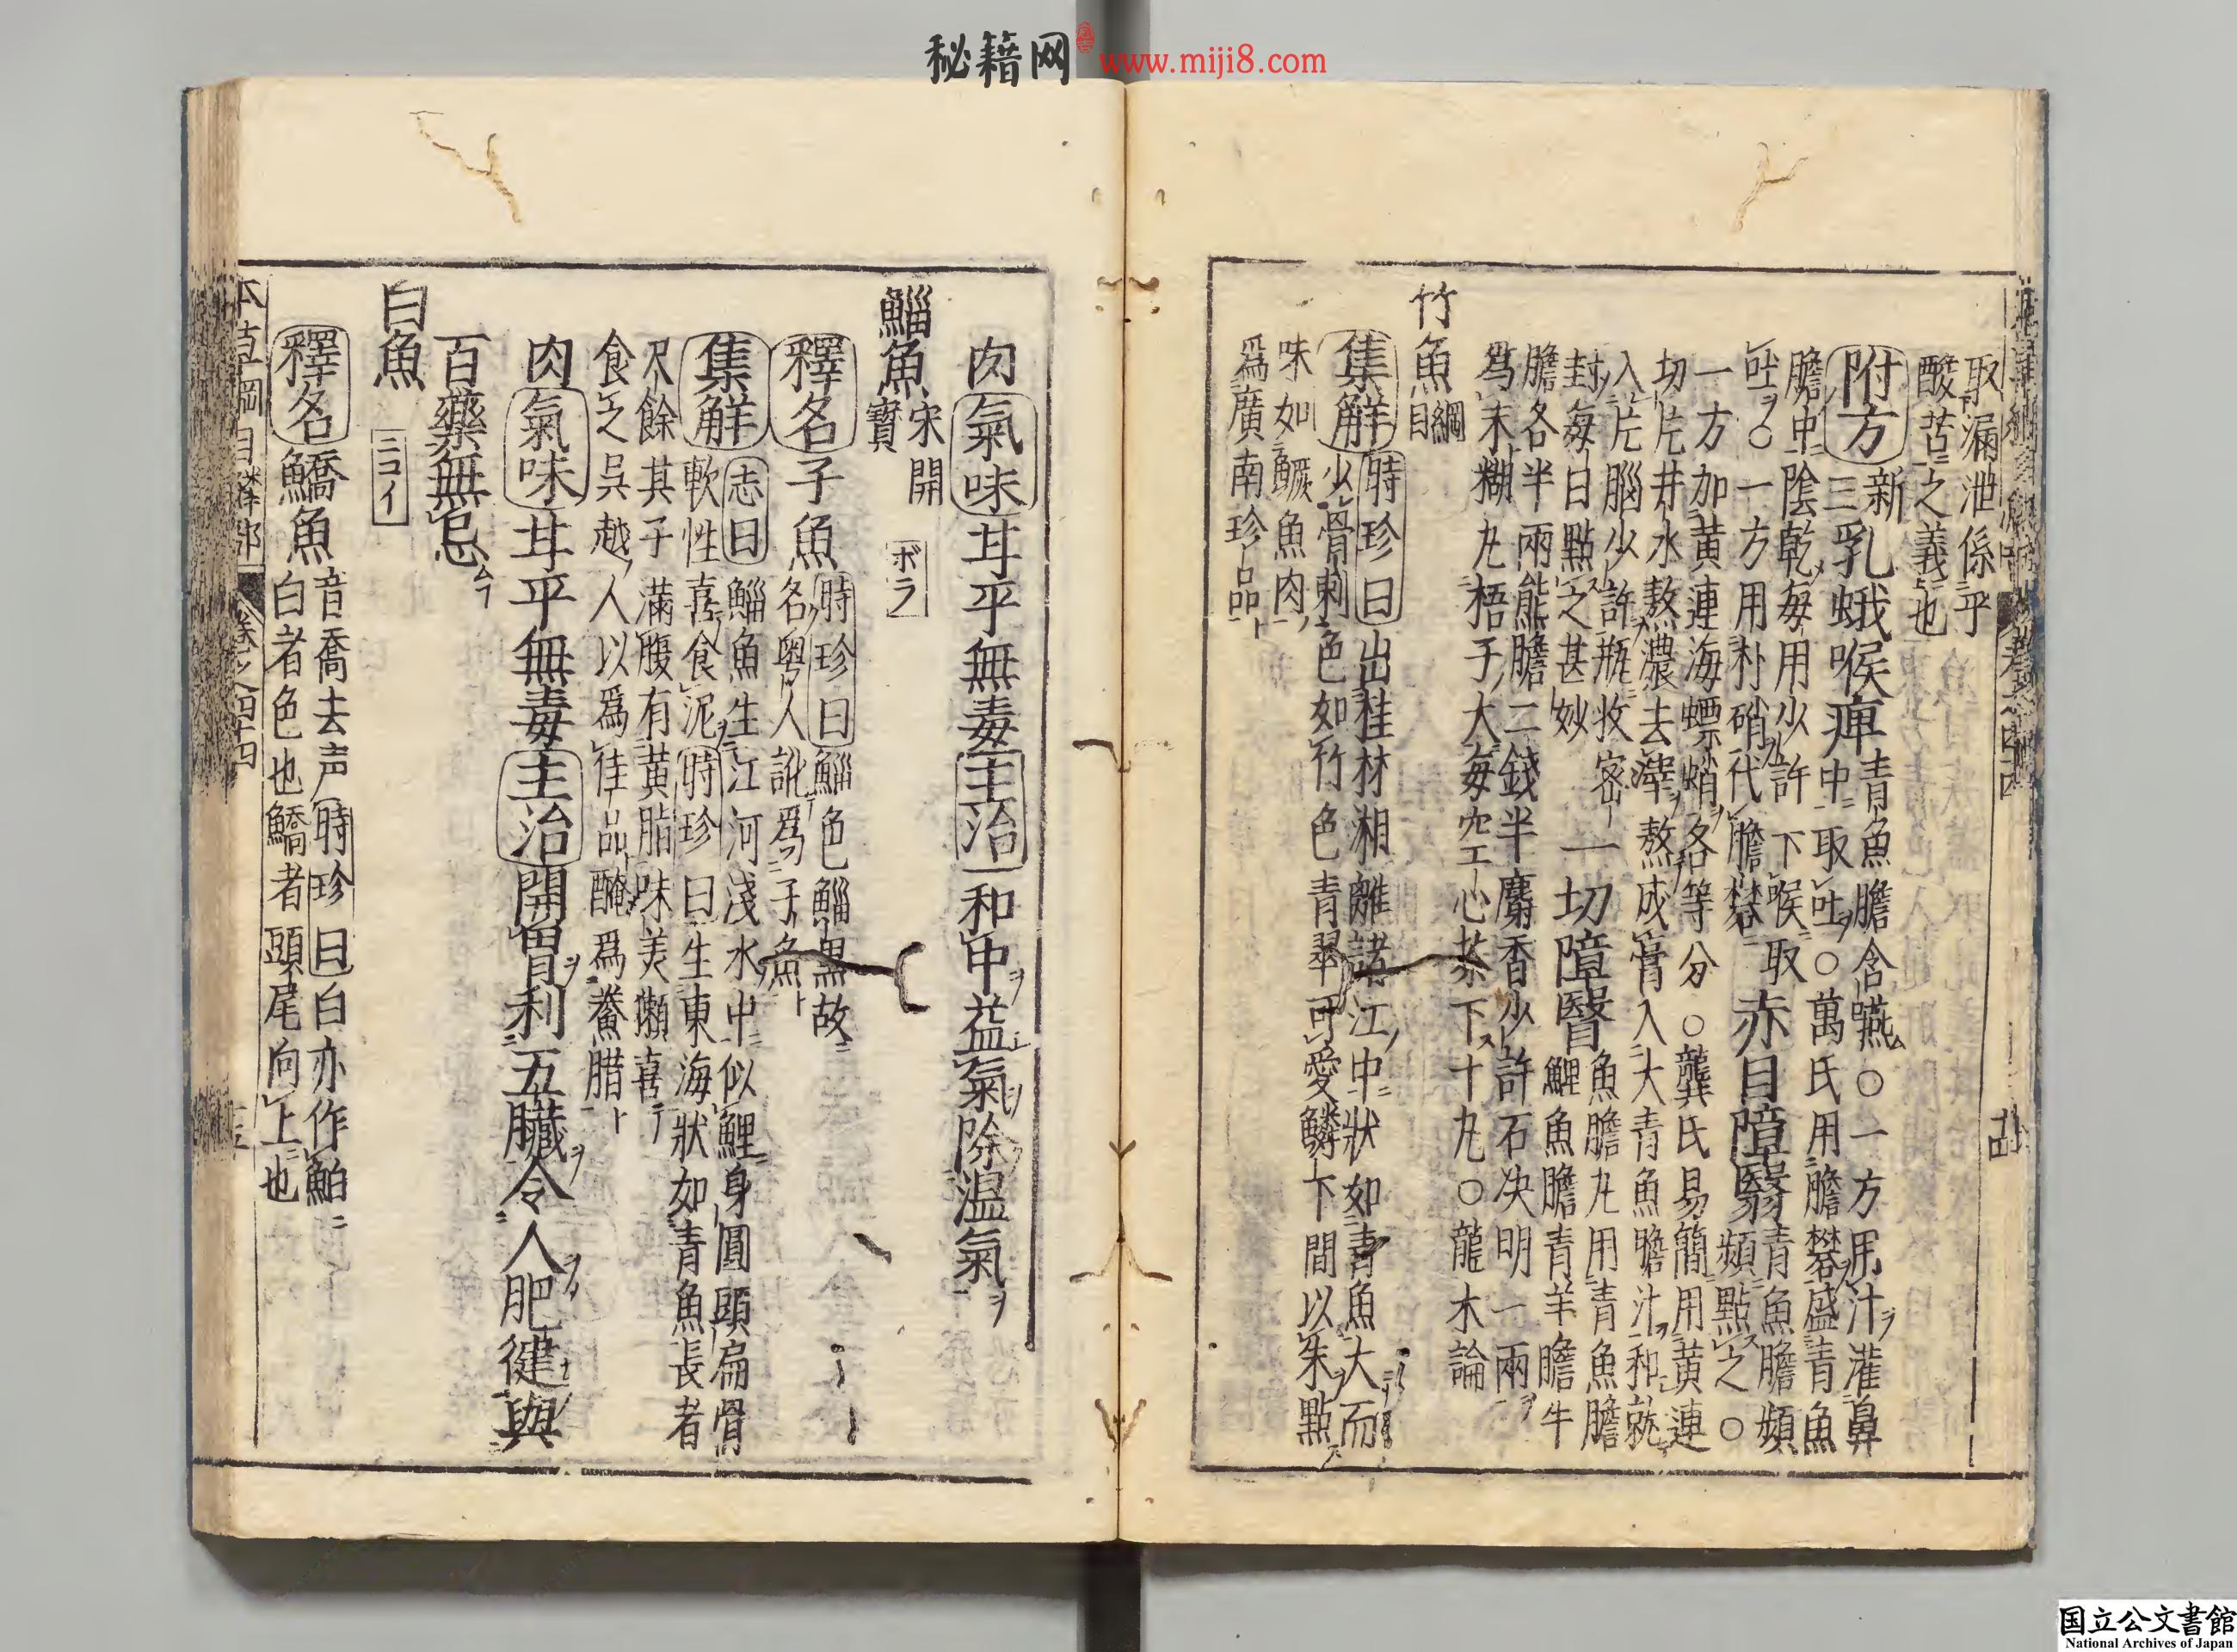 秘籍网 www.miji8.com
取漏泄係乎
酸苦之義也
附方 新三 乳蛾喉痺 青魚膽含嚥○一方用汁灌鼻
中取吐○萬氏用膽礬盛青魚
膽中陰乾每用少許下喉取
吐○一方用朴硝代膽礬 赤目障翳 青魚膽頻
頻點之○
一方加黄連海螵蛸各等分○龔氏易簡用黄連
切片井水熬濃去滓熬成膏入大青魚膽汁和就
入片腦少許瓶收密
封每日點之甚妙 一切障翳 魚膽丸用青魚膽
鯉魚膽青羊膽牛
膽各半兩熊膽二錢半麝香少許石決明一兩
爲末糊丸梧子大每空心茶下十丸○龍木論
竹魚 綱目
集解 時珍曰出桂林湘離諸江中狀如青魚大而
少骨刺色如竹色青翠可愛鱗下間以朱點
味如鱖魚肉
爲廣南珍品
肉 氣味 甘平無毒 主治 和中益氣除濕氣
鯔魚 宋開寶 ボラ
釋名 子魚 時珍曰鯔色鯔黒故
名粤人訛爲子魚
集解 志曰鯔魚生江河淺水中似鯉身圓頭扁骨
軟性喜食泥 時珍曰生東海狀如青魚長者
尺餘其子滿腹有黄脂味美獺喜
食之呉越人以爲佳品醃爲鮝腊
肉 氣味 甘平無毒 主治 開胃利五臟令人肥健與
百藥無忌
白魚 ニコイ
釋名 鱎魚 音喬去声 時珍曰白亦作鮊
白者色也鱎者頭尾向上也
本草綱目鱗部 卷之四十四
国立公文書館
National Archives of Japan